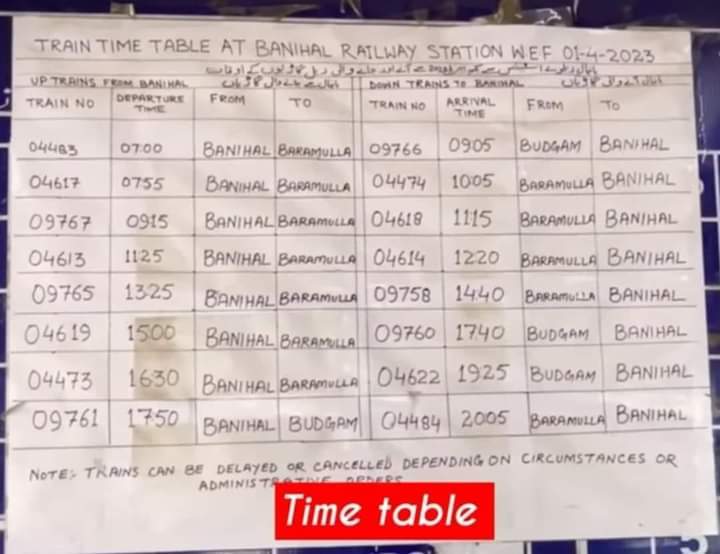 TRAIN TIME TABLE AT BANIHAL RAILWAY STATION W.E.F 01-4-2023
UP TRAINS FROM BANIHAL DOWN TRAINS TO BANIHAL
TRAIN NO DEPARTURE TIME FROM TO TRAIN NO ARRIVAL TIME FROM TO
04483 0700 BANIHAL BARAMULLA 09766 0905 BUDGAM BANIHAL
04617 0755 BANIHAL BARAMULLA 04474 1005 BARAMULLA BANIHAL
09767 0915 BANIHAL BARAMULLA 04618 1115 BARAMULLA BANIHAL
04613 1125 BANIHAL BARAMULLA 04614 1220 BARAMULLA BANIHAL
09765 1325 BANIHAL BARAMULLA 09758 1440 BARAMULLA BANIHAL
04619 1500 BANIHAL BARAMULLA 09760 1740 BUDGAM BANIHAL
04473 1630 BANIHAL BARAMULLA 04622 1925 BUDGAM BANIHAL
09761 1750 BANIHAL BUDGAM 04484 2005 BARAMULLA BANIHAL
NOTE:- TRAINS CAN BE DELAYED OR CANCELLED DEPENDING ON CIRCUMSTANCES OR
ADMINISTRATIVE ORDERS
Time table